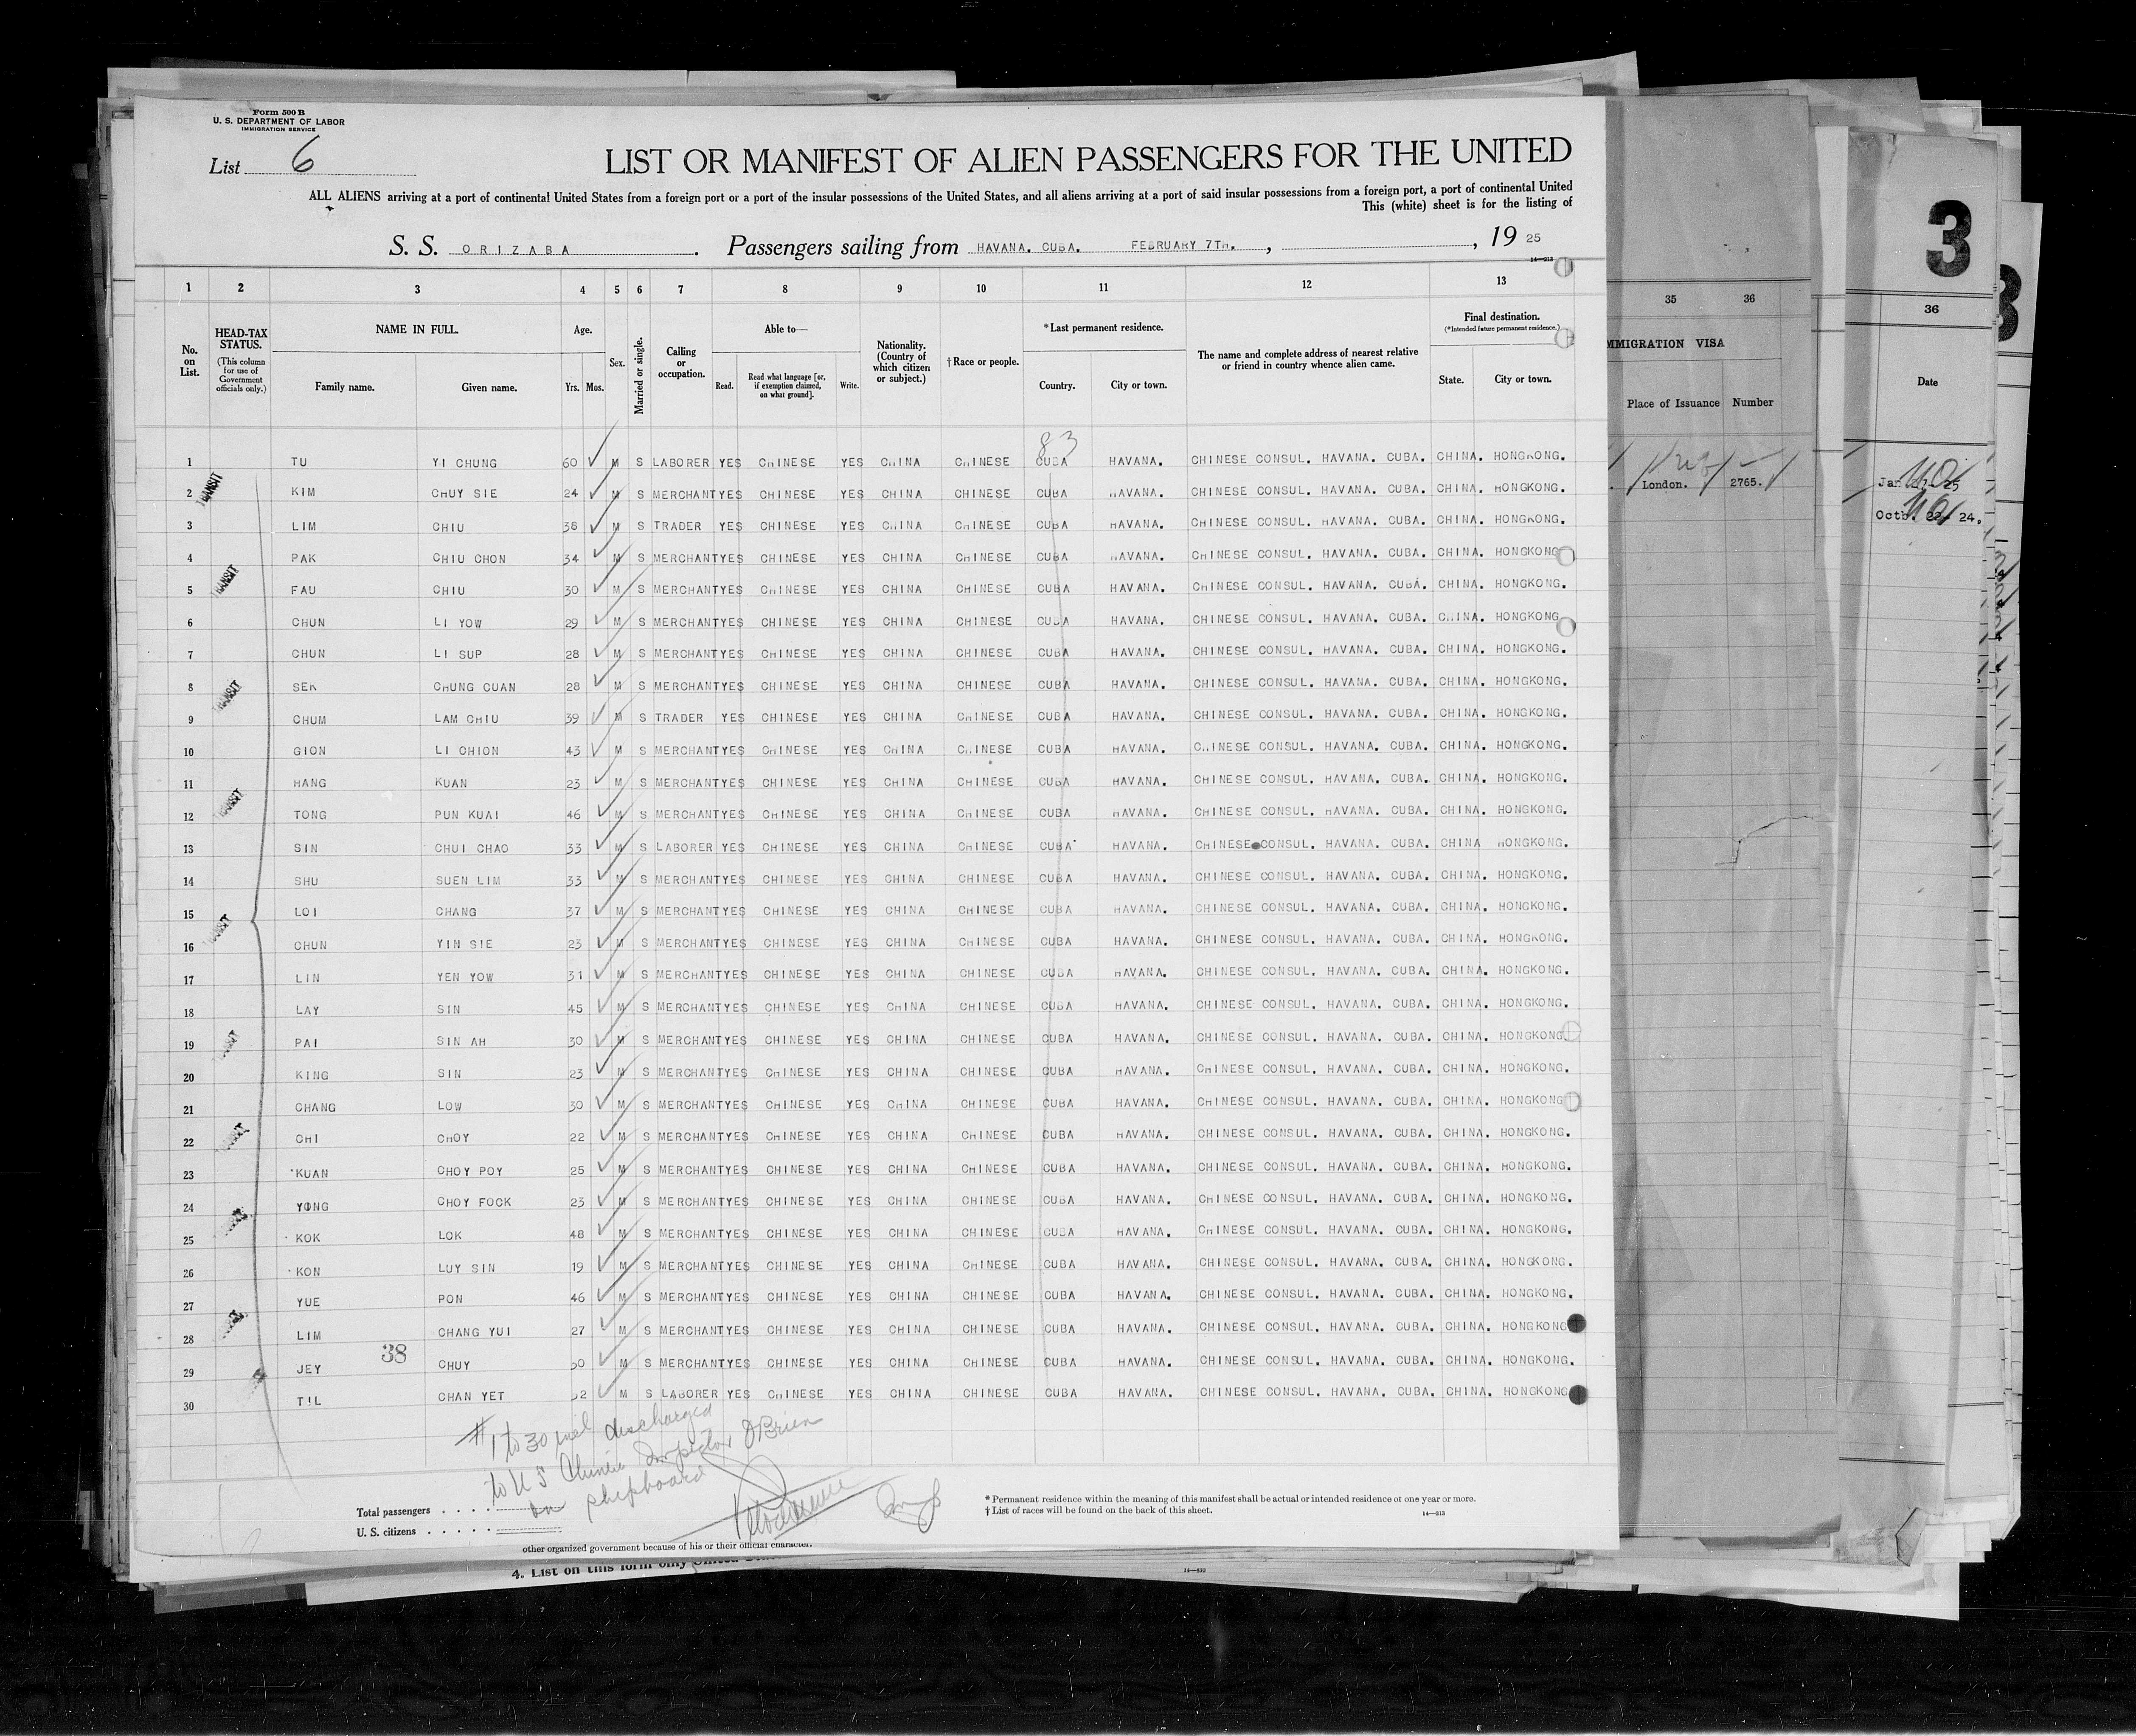 Form 500 B
U. S. DEPARTMENT OF LABOR
IMMIGRATION SERVICE
List 6
LIST OR MANIFEST OF ALIEN PASSENGERS FOR THE UNITED
ALL ALIENS arriving at a port of continental United States from a foreign port or a port of the insular possessions of the United States, and all aliens arriving at a port of said insular possessions from a foreign port, a port of continental United
This (white) sheet is for the listing of
S. S. ORIZABA. Passengers sailing from HAVANA. CUBA. FEBRUARY 7TH. , , 19 25
14—213
1 2 3 4 5 6 7 8 9 10 11 12 13
No. on List. HEAD-TAX STATUS. (This column for use of Government officials only.) NAME IN FULL. Family name. Given name. Age. Yrs. Mos. Sex. Married or single. Calling or occupation. Able to— Read. Read what language [or, if exemption claimed, on what ground]. Write. Nationality. (Country of which citizen or subject.) †Race or people. *Last permanent residence. Country. City or town. The name and complete address of nearest relative or friend in country whence alien came. Final destination. (*Intended future permanent residence.) State. City or town.
83
1 TU YI CHUNG 60 M S LABORER YES CHINESE YES CHINA CHINESE CUBA HAVANA. CHINESE CONSUL. HAVANA. CUBA. CHINA. HONGKONG.
2 TRANSIT KIM CHUY SIE 24 M S MERCHANT YES CHINESE YES CHINA CHINESE CUBA HAVANA. CHINESE CONSUL. HAVANA. CUBA. CHINA. HONGKONG.
3 LIM CHIU 38 M S TRADER YES CHINESE YES CHINA CHINESE CUBA HAVANA. CHINESE CONSUL. HAVANA. CUBA. CHINA. HONGKONG.
4 PAK CHIU CHON 34 M S MERCHANT YES CHINESE YES CHINA CHINESE CUBA HAVANA. CHINESE CONSUL. HAVANA. CUBA. CHINA. HONGKONG
5 TRANSIT FAU CHIU 30 M S MERCHANT YES CHINESE YES CHINA CHINESE CUBA HAVANA. CHINESE CONSUL. HAVANA. CUBA. CHINA. HONGKONG.
6 CHUN LI YOW 29 M S MERCHANT YES CHINESE YES CHINA CHINESE CUBA HAVANA. CHINESE CONSUL. HAVANA. CUBA. CHINA. HONGKONG
7 CHUN LI SUP 28 M S MERCHANT YES CHINESE YES CHINA CHINESE CUBA HAVANA. CHINESE CONSUL. HAVANA. CUBA. CHINA. HONGKONG.
8 TRANSIT SEK CHUNG CUAN 28 M S MERCHANT YES CHINESE YES CHINA CHINESE CUBA HAVANA. CHINESE CONSUL. HAVANA. CUBA. CHINA. HONGKONG.
9 CHUM LAM CHIU 39 M S TRADER YES CHINESE YES CHINA CHINESE CUBA HAVANA. CHINESE CONSUL. HAVANA. CUBA. CHINA. HONGKONG.
10 GION LI CHION 43 M S MERCHANT YES CHINESE YES CHINA CHINESE CUBA HAVANA. CHINESE CONSUL. HAVANA. CUBA. CHINA. HONGKONG.
11 HANG KUAN 23 M S MERCHANT YES CHINESE YES CHINA CHINESE CUBA HAVANA. CHINESE CONSUL. HAVANA. CUBA. CHINA. HONGKONG.
12 TRANSIT TONG PUN KUAI 46 M S MERCHANT YES CHINESE YES CHINA CHINESE CUBA HAVANA. CHINESE CONSUL. HAVANA. CUBA. CHINA. HONGKONG.
13 SIN CHUI CHAO 33 M S LABORER YES CHINESE YES CHINA CHINESE CUBA HAVANA. CHINESE CONSUL. HAVANA. CUBA. CHINA HONGKONG.
14 SHU SUEN LIM 33 M S MERCHANT YES CHINESE YES CHINA CHINESE CUBA HAVANA. CHINESE CONSUL. HAVANA. CUBA. CHINA. HONGKONG.
15 TRANSIT LOI CHANG 37 M S MERCHANT YES CHINESE YES CHINA CHINESE CUBA HAVANA. CHINESE CONSUL. HAVANA. CUBA. CHINA. HONGKONG.
16 CHUN YIN SIE 23 M S MERCHANT YES CHINESE YES CHINA CHINESE CUBA HAVANA. CHINESE CONSUL. HAVANA. CUBA. CHINA. HONGKONG.
17 LIN YEN YOW 31 M S MERCHANT YES CHINESE YES CHINA CHINESE CUBA HAVANA. CHINESE CONSUL. HAVANA. CUBA. CHINA. HONGKONG.
18 LAY SIN 45 M S MERCHANT YES CHINESE YES CHINA CHINESE CUBA HAVANA. CHINESE CONSUL. HAVANA. CUBA. CHINA. HONGKONG.
19 TRANSIT PAI SIN AH 30 M S MERCHANT YES CHINESE YES CHINA CHINESE CUBA HAVANA. CHINESE CONSUL. HAVANA. CUBA. CHINA. HONGKONG.
20 KING SIN 23 M S MERCHANT YES CHINESE YES CHINA CHINESE CUBA HAVANA. CHINESE CONSUL. HAVANA. CUBA. CHINA. HONGKONG.
21 CHANG LOW 30 M S MERCHANT YES CHINESE YES CHINA CHINESE CUBA HAVANA. CHINESE CONSUL. HAVANA. CUBA. CHINA. HONGKONG
22 CHI CHOY 22 M S MERCHANT YES CHINESE YES CHINA CHINESE CUBA HAVANA. CHINESE CONSUL. HAVANA. CUBA. CHINA. HONGKONG.
23 KUAN CHOY POY 25 M S MERCHANT YES CHINESE YES CHINA CHINESE CUBA HAVANA. CHINESE CONSUL. HAVANA. CUBA. CHINA. HONGKONG.
24 YONG CHOY FOCK 23 M S MERCHANT YES CHINESE YES CHINA CHINESE CUBA HAVANA. CHINESE CONSUL. HAVANA. CUBA. CHINA. HONGKONG.
25 KOK LOK 48 M S MERCHANT YES CHINESE YES CHINA CHINESE CUBA HAVANA. CHINESE CONSUL. HAVANA. CUBA. CHINA. HONGKONG.
26 KON LUY SIN 19 M S MERCHANT YES CHINESE YES CHINA CHINESE CUBA HAVANA. CHINESE CONSUL. HAVANA. CUBA. CHINA. HONGKONG.
27 YUE PON 46 M S MERCHANT YES CHINESE YES CHINA CHINESE CUBA HAVANA. CHINESE CONSUL. HAVANA. CUBA. CHINA. HONGKONG.
28 LIM CHANG YUI 27 M S MERCHANT YES CHINESE YES CHINA CHINESE CUBA HAVANA. CHINESE CONSUL. HAVANA. CUBA. CHINA. HONGKONG
38
29 JEY CHUY M S MERCHANT YES CHINESE YES CHINA CHINESE CUBA HAVANA. CHINESE CONSUL. HAVANA. CUBA. CHINA. HONGKONG.
30 CHAN YET M S LABORER YES CHINESE YES CHINA CHINESE CUBA HAVANA. CHINESE CONSUL. HAVANA. CUBA. CHINA. HONGKONG
#1 to 30 incl discharged
to U S Chinese Inspector O'Brien
on shipboard
Total passengers . . . .
U. S. citizens . . . . .
* Permanent residence within the meaning of this manifest shall be actual or intended residence of one year or more.
† List of races will be found on the back of this sheet.
14—213
other organized government because of his or their official character.
4. List on this form only United
35 36
IMMIGRATION VISA
Place of Issuance Number
London. 2765.
3
36
Date
Octb. 22 24.